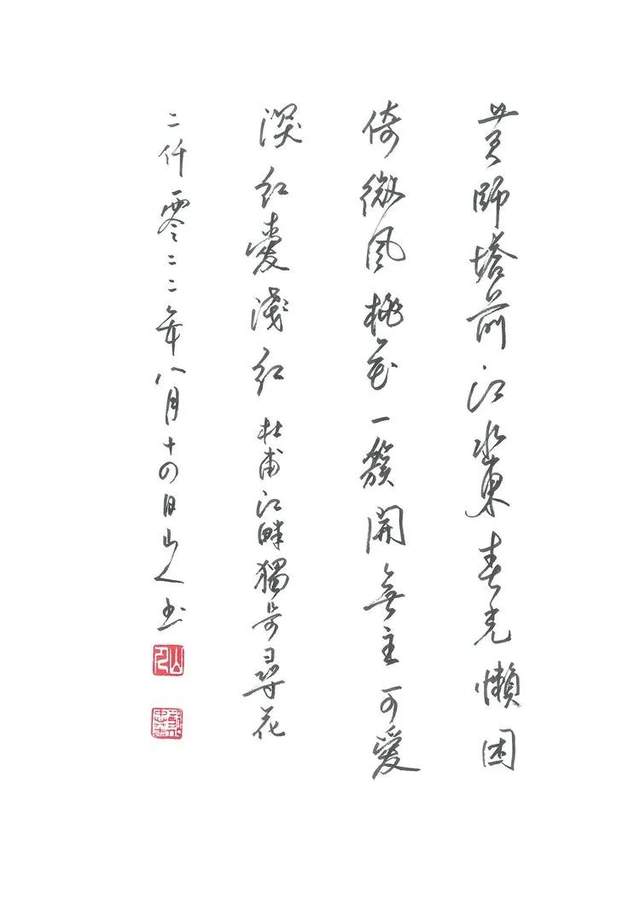 黄師塔前江水東春光懶困
倚微風桃花一簇開無主可愛
深紅愛淺紅 杜甫江畔獨步尋花
二仟零二二年八月十四日山人书
山人